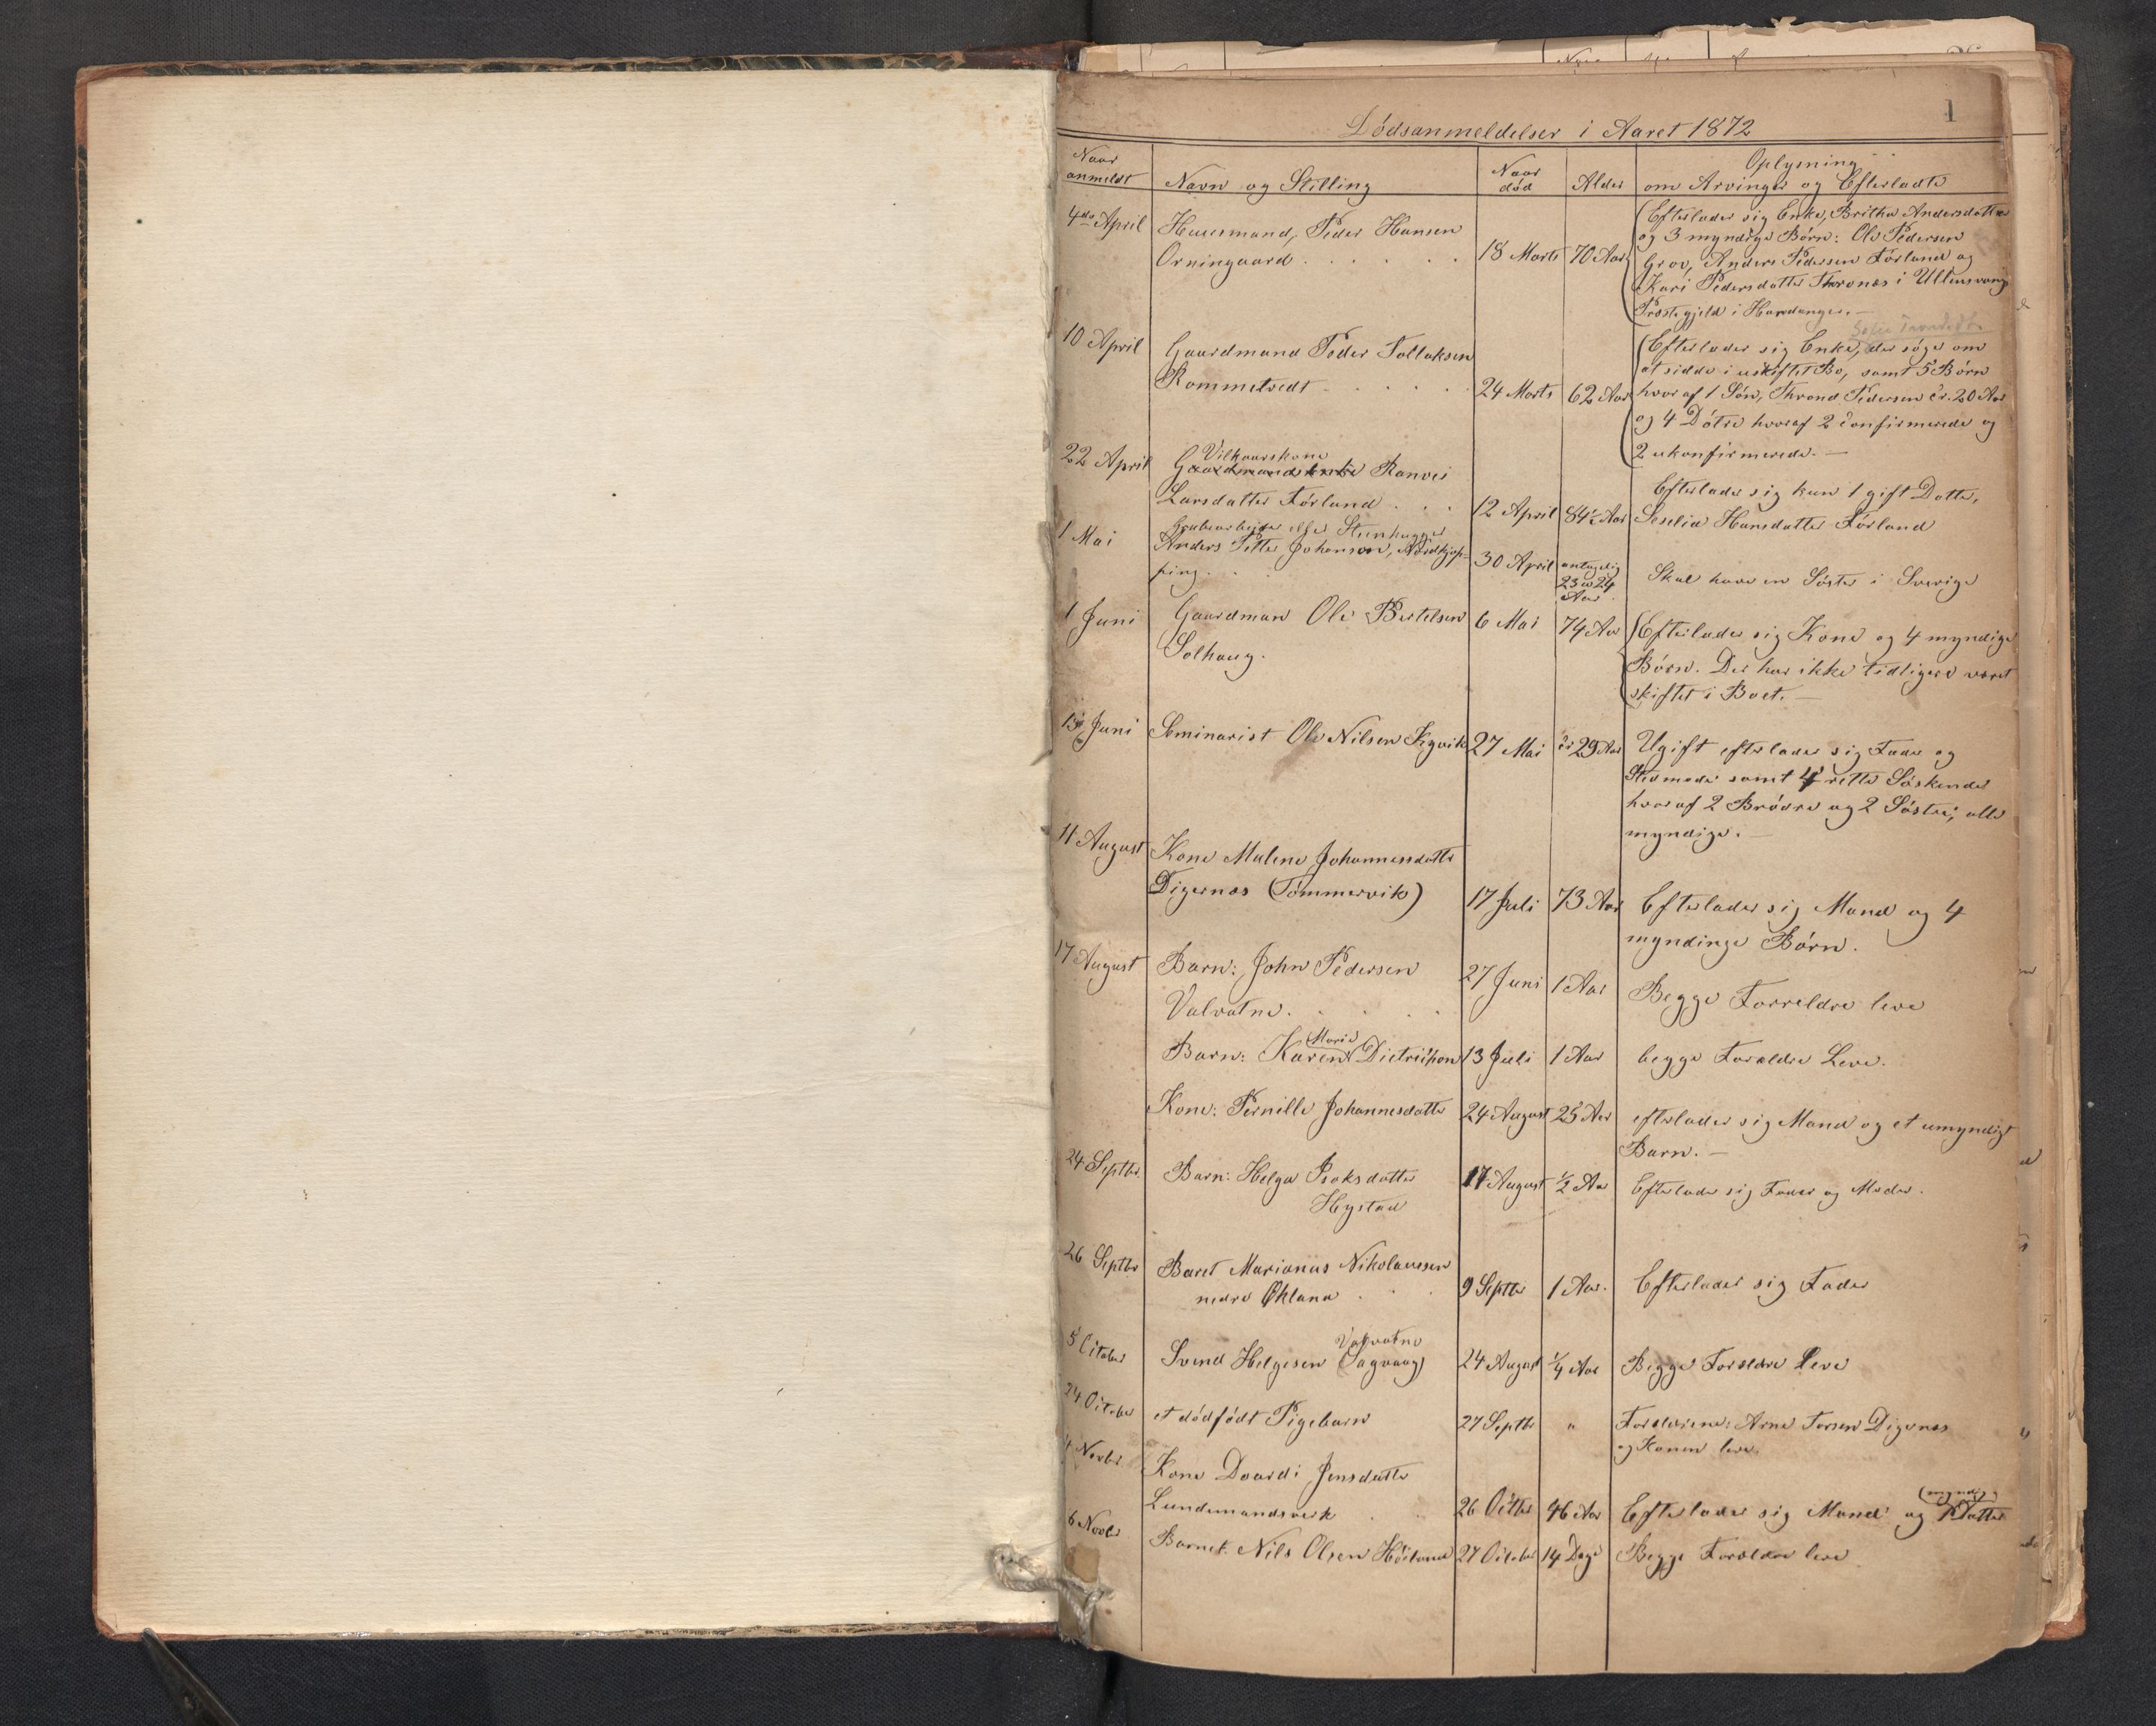 1
Dödsanmeldelser i Aaret 1872
Naar anmeldt
Navn og Stilling
Naar död
Alder
Oplysning
om Arvinger og Efterladte
4de April
Huusmand, Peder Hansen
Orningaard . . . . . .
18 Marts
70 Aar
Efterlader sig Enke, Britha Andersdatter
og 3 myndige Börn: Ole Pedersen
Grov, Anders Pedersen Förland og
Kari Pedersdatter Thronæs i Ullensvang
Præstegjeld i Hardanger. —
10 April
Gaardmand Peder Tollaksen
Rommetvedt . . . . . .
24 Marts
62 Aar
Efterlader sig Enke, der söger om
at sidde i uskiftet Bo, samt 5 Börn
hvoraf 1 Sön, Thrond Pedersen er 20 Aar
og 4 Dötre hvoraf 2 confirmerede og
2 ukonfirmerede. —
22 April
Vilkaarskone
Gaardmandsenke Ranvei
Larsdatter Förland . . .
12 April
84½ Aar
Efterlader sig kun 1 gift Datter,
Seselia Hansdatter Förland
1 Mai
Grubearbeider eller Steenhugger
Anders Petter Johanson, Nordkjøp-
ping . .
30 April
antagelig
23 a 24
Aar.
Skal have en Söster i Sverige
1 Juni
Gaardman Ole Bertelsen
Solhaug.
6 Mai
74 Aar
Efterlader sig Kone og 4 myndige
Börn. Der har ikke tidligere været
skiftet i Boet. —
13 Juni
Seminarist Ole Nilsen Kyvik
27 Mai
er 29 Aar
Ugift efterlader sig Fader og
Stevmoder samt 4 rette Söskende
hvoraf 2 Brödre og 2 Söstre; alle
myndige. —
11 August
Kone Malene Johannesdatter
Digernæs (Tömmervik)
17 Juli
73 Aar
Efterlader sig Mand og 4
myndinge Börn.
17 August
Barn: John Pedersen
Valvatne. . . . .
27 Juni
1 Aar
Begge Forreldre leve
Marie
Barn: Karen Dietrichson
13 Juli
1 Aar
begge Forældre Leve.
Kone: Pernille Johannesdatter
24 August
25 Aar
efterlader sig Mand og et umyndigt
Barn. —
24 Septbr.
Barn: Helga Isaksdatter
Hystad
17 August
½ Aar
Efterlader sig Fader og Moder.
26 Septbr
Baret Marianus Nikolausen
nedre Økland . .
9 Septbr
1 Aar.
Efterlader sig Fader
5 October
Valvatne
Svend Helgesen (Sagvaag)
24 August
¼ Aar
Begge Forældre Leve
24 October
et dödfödt Pigebarn
27 Septbr
"
Forældrene: Arne Torsen Digernæs
og Konen leve.
4 Novbr.
Kone Doardi Jensdatter
Lundemandsverk . .
26 Octbr
46 Aar
(myndig)
Efterlader sig Mand og 1 Datter
6 Novbr
Barnet Nils Olsen Höiland
27 October
14 Dage
Begge Forældre leve